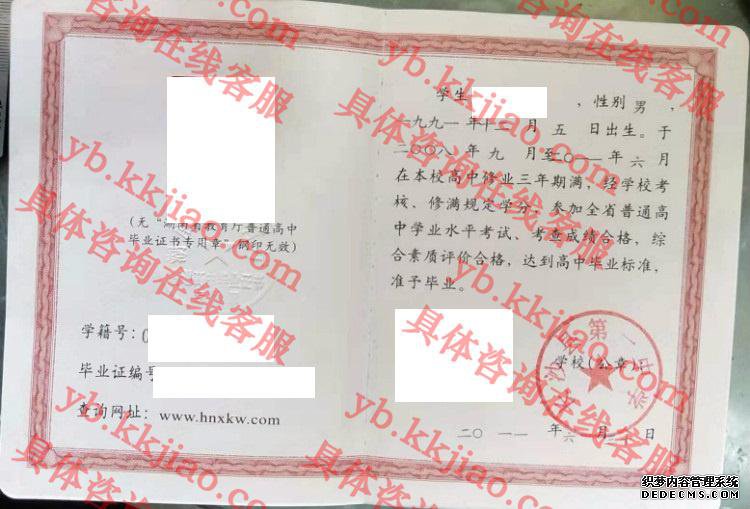 学生 ，性别男，
一九九一年十二月五日出生。于
二〇〇八年九月至二〇一一年六月
在本校高中修业三年期满，经学校考
核、修满规定学分，参加全省普通高
中学业水平考试、考查成绩合格，综
合素质评价合格，达到高中毕业标准，
准予毕业。
(无“湖南省教育厅普通高中
毕业证书专用章”钢印无效)
学籍号：
毕业证编号
查询网址：www.hnxkw.com
第一中学
学校(公章)：
二〇一一年六月 日
具体咨询在线客服
yb.kkjiao.com
具体咨询在线客服
yb.kkjiao.com
具体咨询在线客服
yb.kkjiao.com
具体咨询在线客服
yb.kkjiao.com
具体咨询在线客服
yb.kkjiao.com
具体咨询在线客服
yb.kkjiao.com
具体咨询在线客服
织梦内容管理系统
DEDECMS.COM